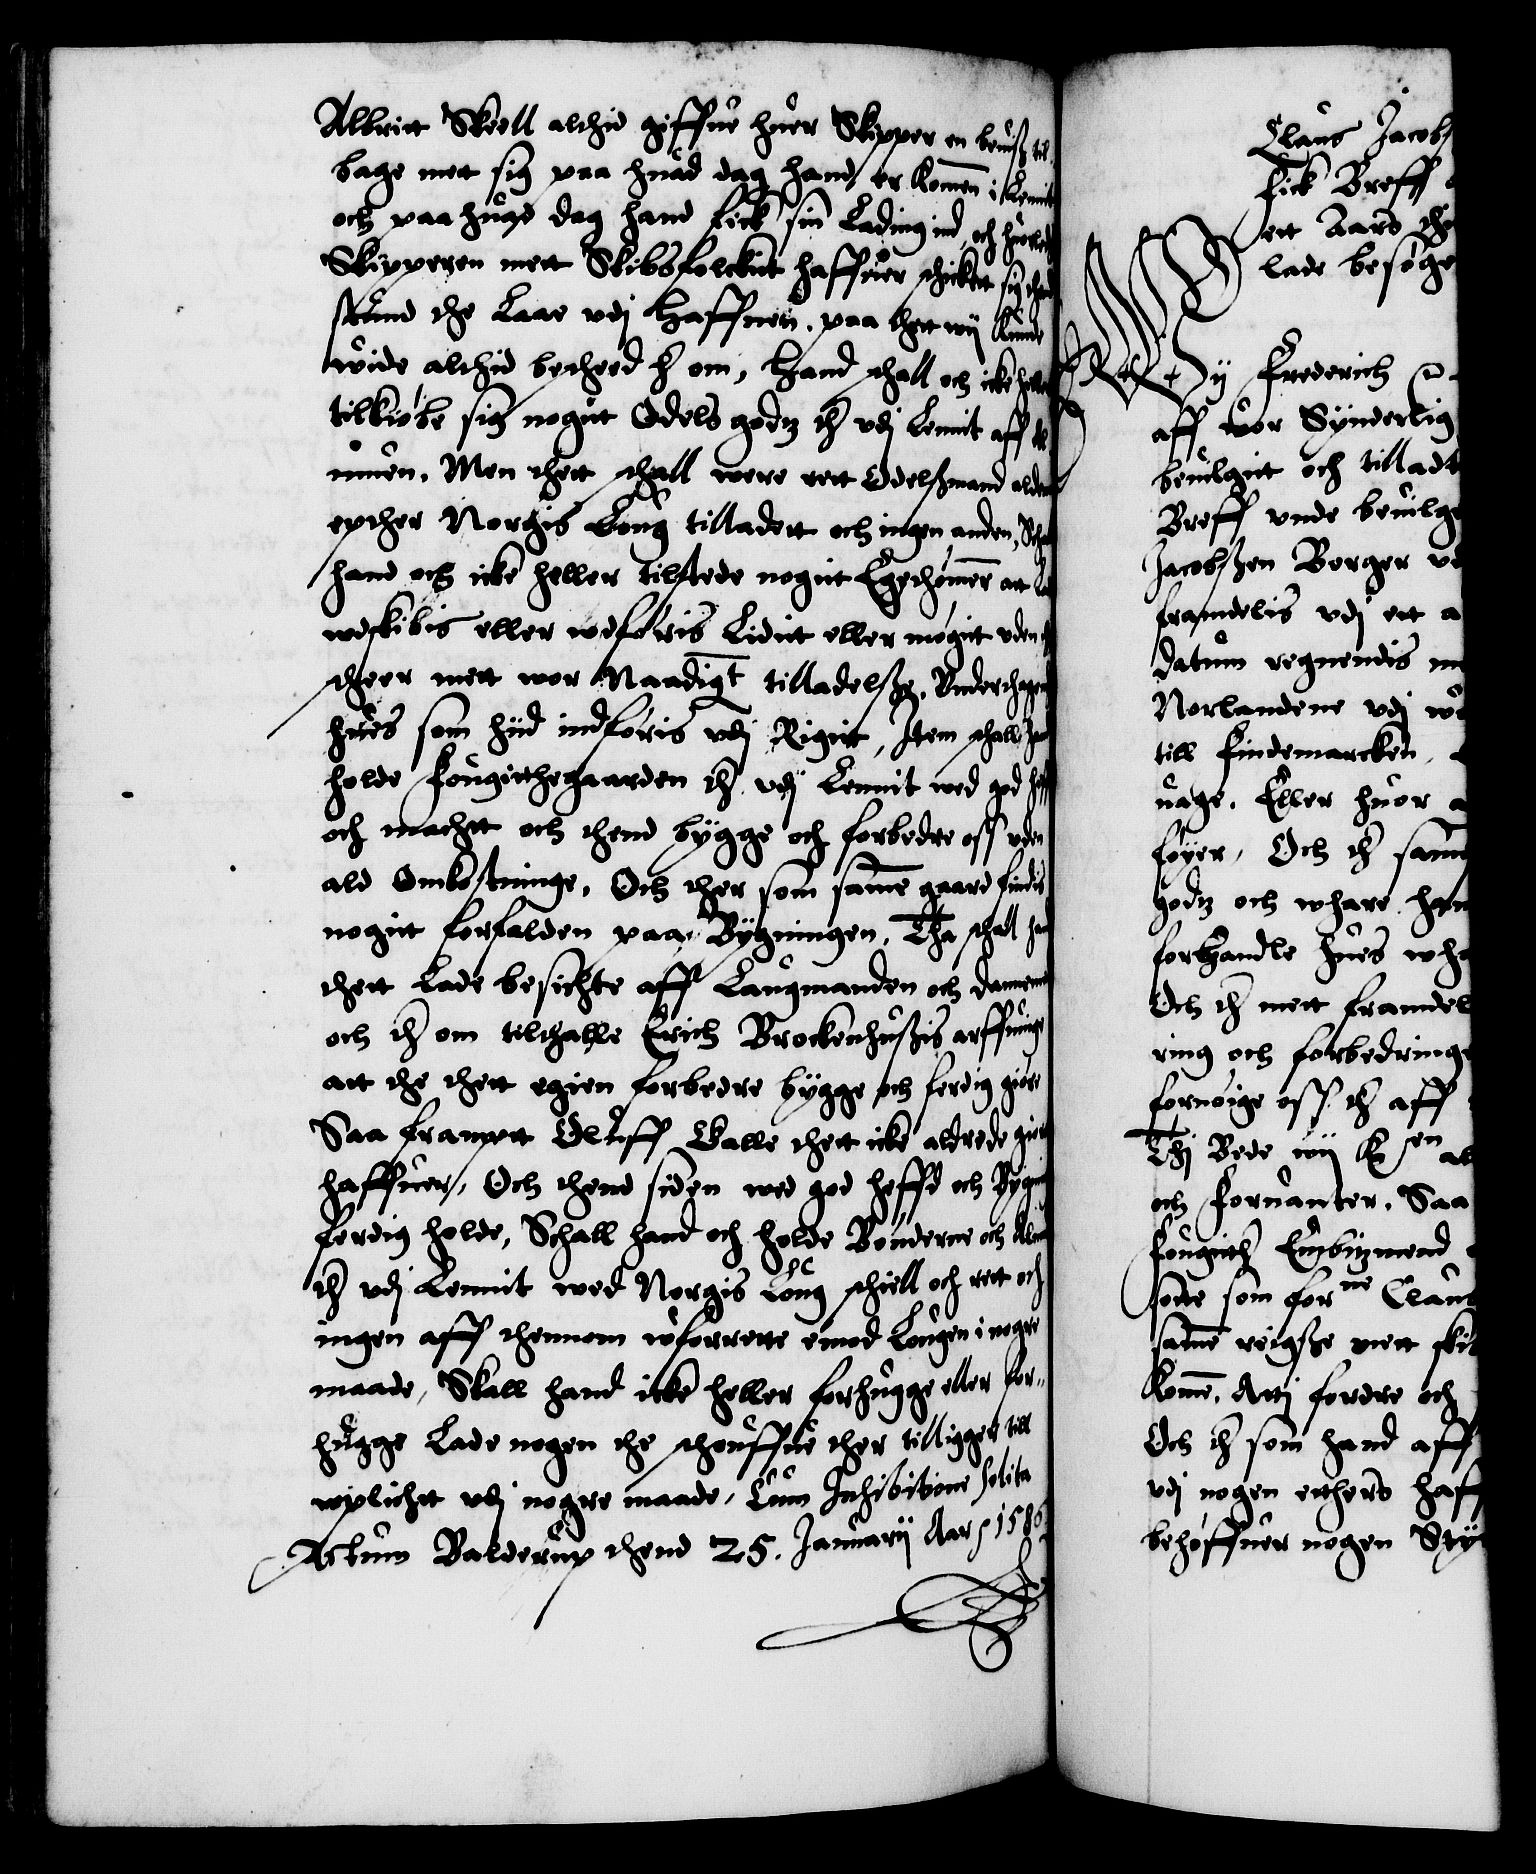 Albritt Skeell altid giffue huer Skipper en beuisß til
bage mett sig paa huad dag hand er komen i Lennit
och paa huad dag hand fick sin Lading ind, och huorled
Skipperen mett Skibsfolckit haffuer schickett sig then
stund the Laae vdj Haffnen. paa thett wij kunde
wide altid beskeed ther om, Hand schall och icke heller
tilkiøbe sig nogitt Odels godtz ther vdj Lennit aff
Men thett schall were rett Odelßmand
epther Norgis Loug tilladett och ingen anden, Schal
hand och icke heller tilstede nogit Egethømer att
wdskibis eller wdføris Lidit eller megit vden
scheer mett wor Naadigst tilladelsße. Vndertagen
hues som hid indføris vdj Rigitt, Item schall hand
holde Fougitthegaarden ther vdj Lennit wed god heff
och machtt och thend bygge och forbedre oss vden
ald Omkostninge, Och ther som same gaard findis
nogit forfalden paa Bygningen, Tha schall hand
thett Lade besichte aff Laugmanden och danneme
och ther om tilthalle Erich Brockenhusßis arffuinge
att the thett egien forbedre bygge och ferdig giøre
Saa frampt Oluff Galle thett icke alrede giort
haffuer, Och thend siden wed god heffd och Bygning
ferdig holde, Schall hand och holde Bønderne och Almue
ther vdj Lennit wed Norgis Loug schiell och rett och
ingen aff thennom wforrette emod Lougen i nogre
maade, Skall hand icke heller forhugge eller for-
hugge Lade nogen the schouffue ther tilligger till
wplichtt vdj nogre maade, Cum Inhibitione solita
Actum Balderup thend 25. Januarij Aar 1586

Claus Jacobs
Fick Breff
ett Aars
lade besøge
Wij Frederich
aff wor Synderlig
beuilgitt och tilladt
Breff vnde beuilge
Jacobsßen Borger
framdelis vdj ett
datum regnendis
Norlandene vdj
till Findemarcken,
uage. Eller huor
føyer, Och ther same
godtz och whare
forhandle hues
Och ther mett framdel
ring och forbedringe
fornøige oss ther aff
Thj Bede wij
och Foruanter. Saa
Fougitther Embitzmend
som forne Claus
same reigsße mett
kome. Attj fordre och
Och ther som hand aff
vdj nogen eithers haff
behøffuer nogen